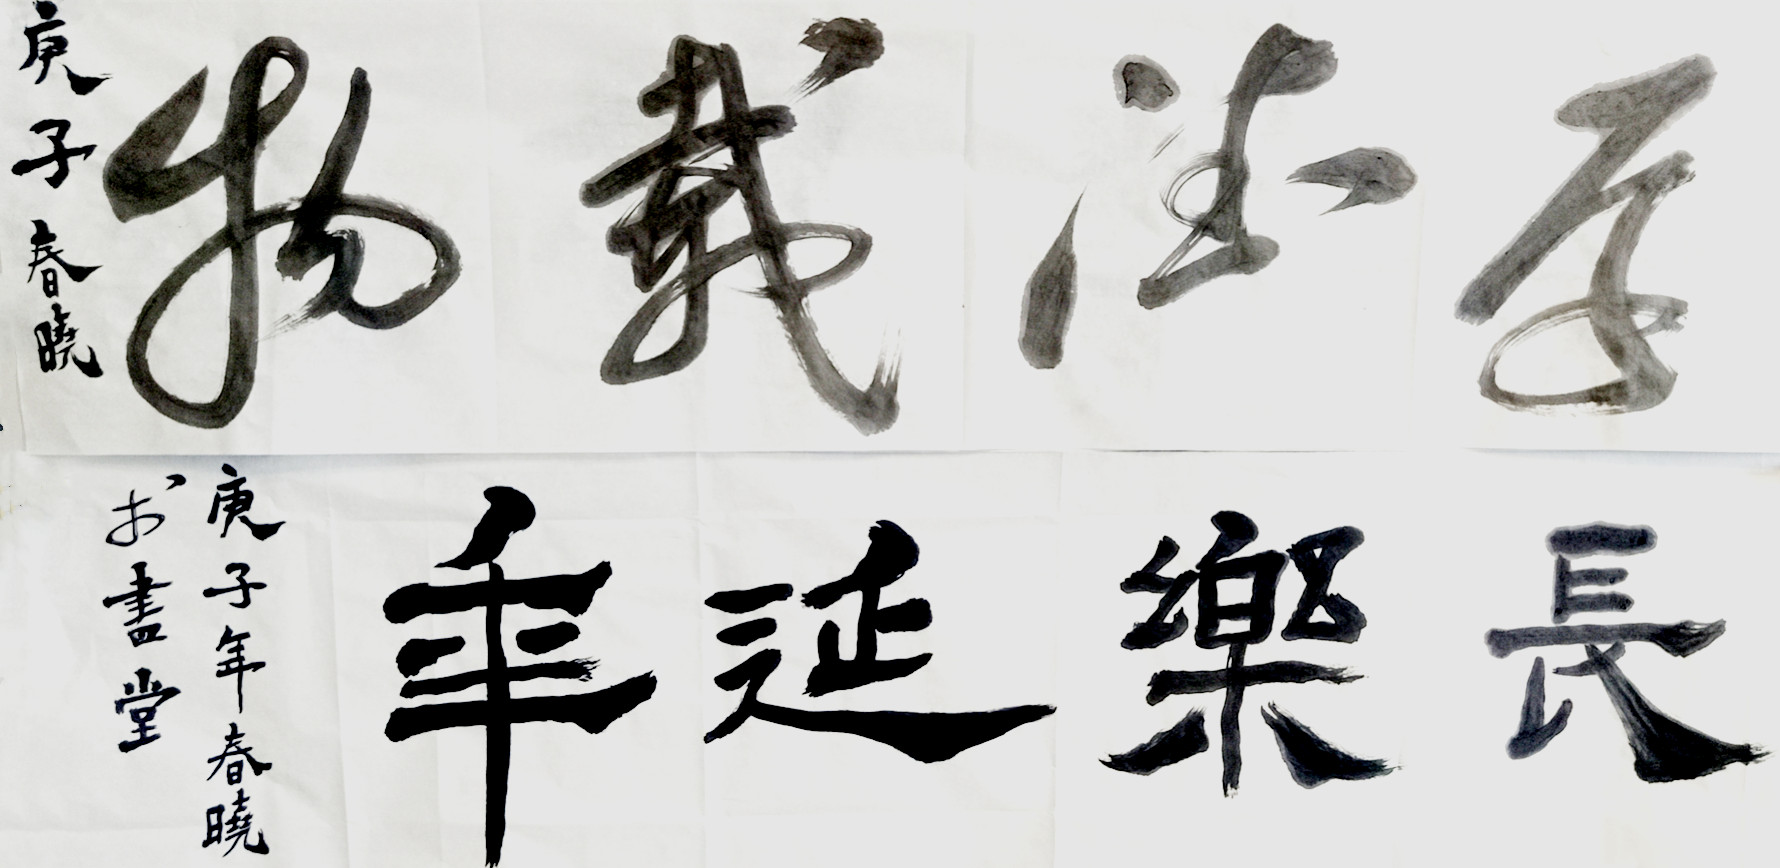 厚德載物
庚子春曉
長樂延年
庚子年春曉
于書堂